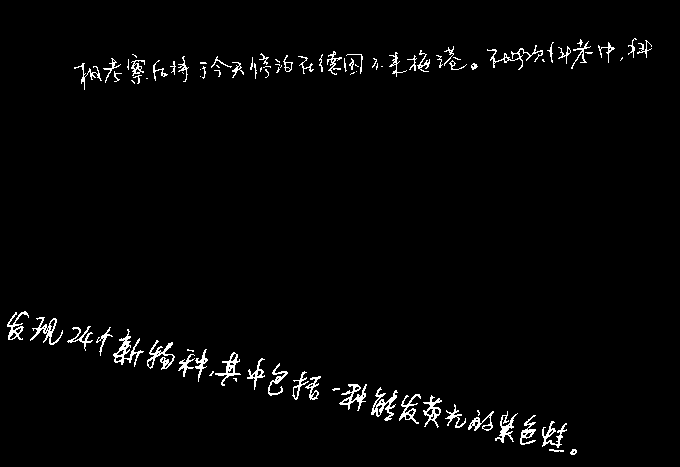 相考察后将于今天停泊在德国不来梅港。在此次科考中,科
发现24个新物种,其中包括一种能发荧光的紫色蛙。